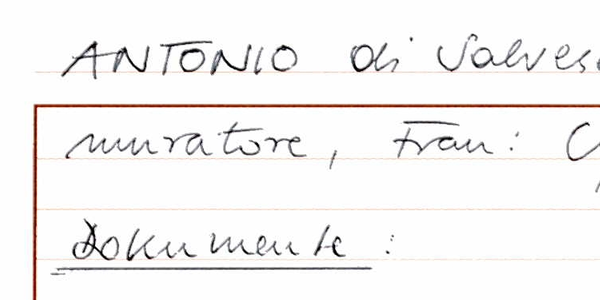 ANTONIO di Salves
muratore, Fran:
Dokumente :